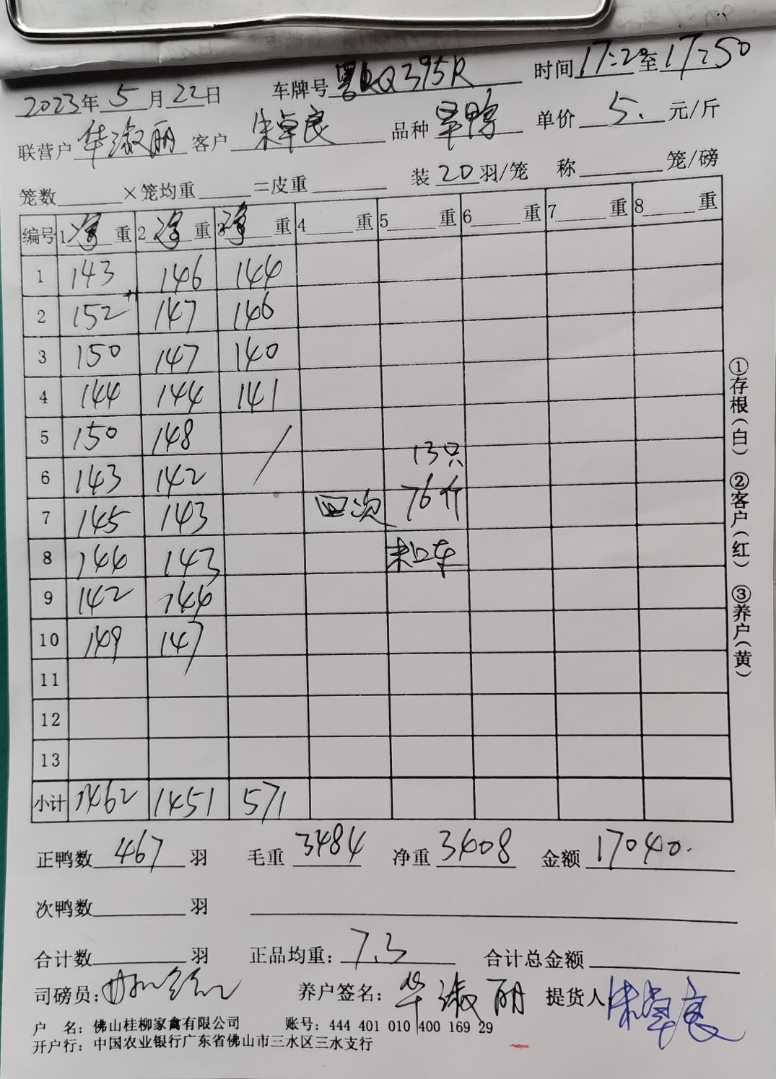 2023年 5 月 22日 车牌号 粤RQ395R 时间 17:20 至 17:50
联营户 华淑丽 客户 朱卓良 品种 旱鸭 单价 5. 元/斤
笼数 ×笼均重 =皮重 装 20 羽/笼 称 笼/磅
编号 1 净 重 2 净 重 3 净 重 4 重 5 重 6 重 7 重 8 重
1 143 146 144
2 152 147 146
3 150 147 140
4 144 144 141
5 150 148 /
13只
6 143 142
7 145 143 四次 76斤
8 144 143 未口车
9 142 144
10 149 147
11
12
13
小计 1462 1451 571
正鸭数 467 羽 毛重 3484 净重 3408 金额 17040.
次鸭数 羽
合计数 羽 正品均重: 7.3 合计总金额
司磅员: 养户签名: 华淑丽 提货人: 朱卓良
户 名: 佛山桂柳家禽有限公司 账号: 444 401 010 400 169 29
开户行: 中国农业银行广东省佛山市三水区三水支行
①存根(白) ②客户(红) ③养户(黄)